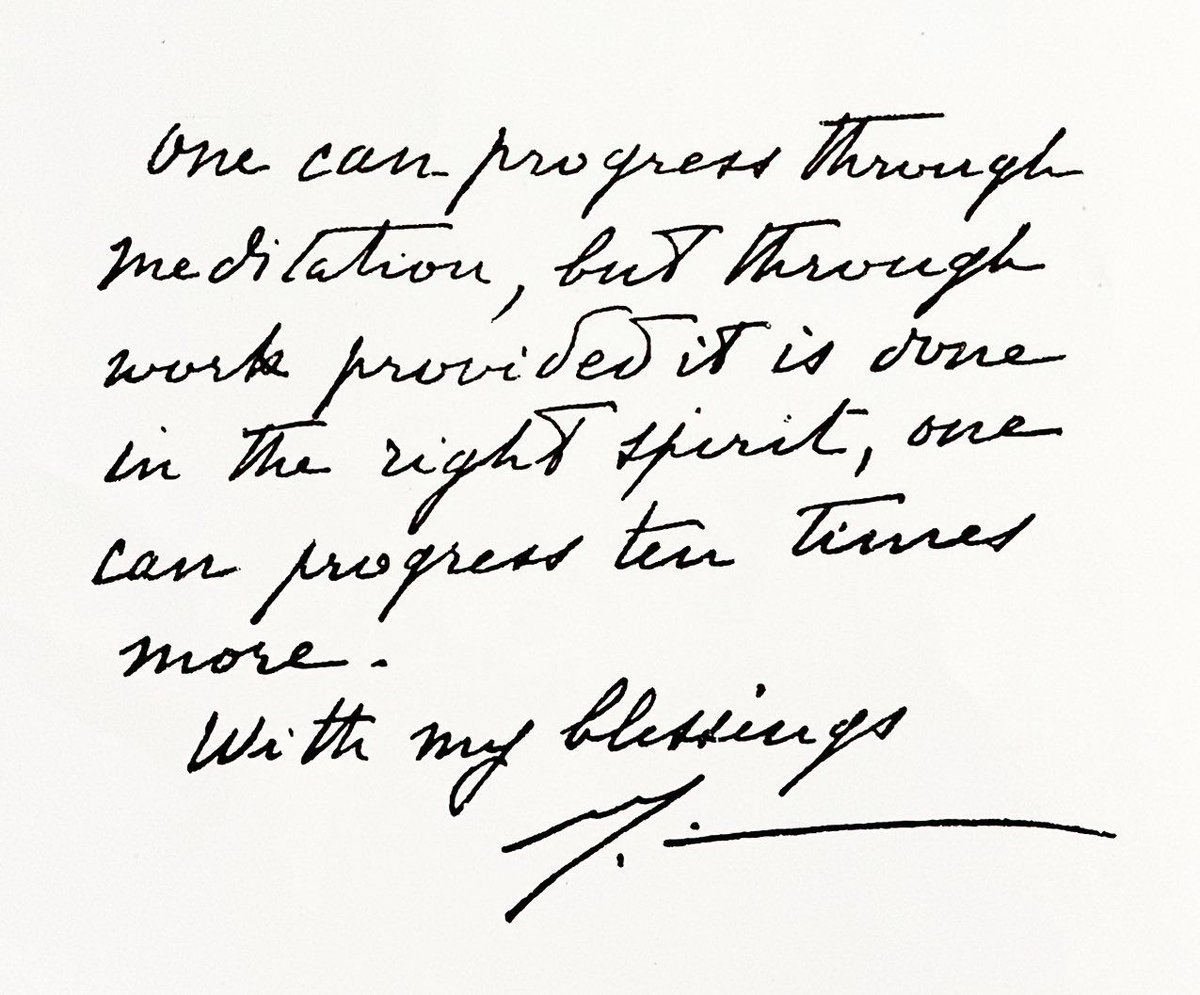 One can progress through
meditation, but through
work provided it is done
in the right spirit, one
can progress ten times
more.
With my blessings